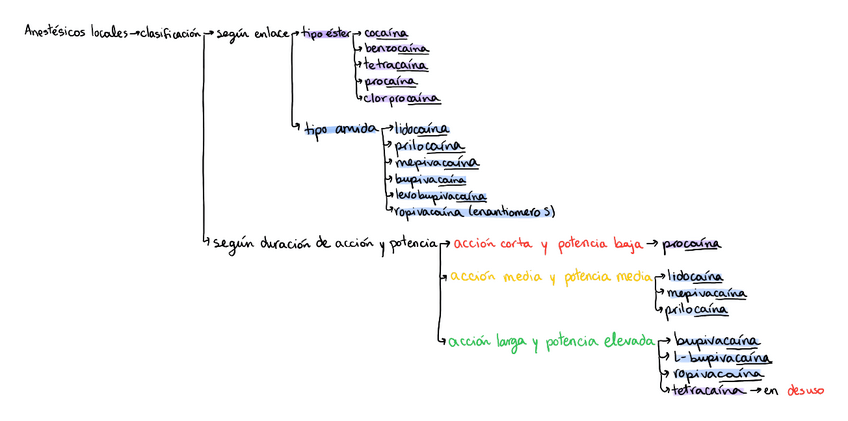 Anestésicos locales→clasificación→según enlace→tipo éster→cocaína
→benzocaína
→tetracaína
→procaína
→clorprocaína
→tipo amida→lidocaína
→prilocaína
→mepivacaína
→bupivacaína
→levobupivacaína
→ropivacaína (enantiomero S)
→según duración de acción y potencia→acción corta y potencia baja→procaína
→acción media y potencia media→lidocaína
→mepivacaína
→prilocaína
→acción larga y potencia elevada→bupivacaína
→L-bupivacaína
→ropivacaína
→tetracaína→en desuso